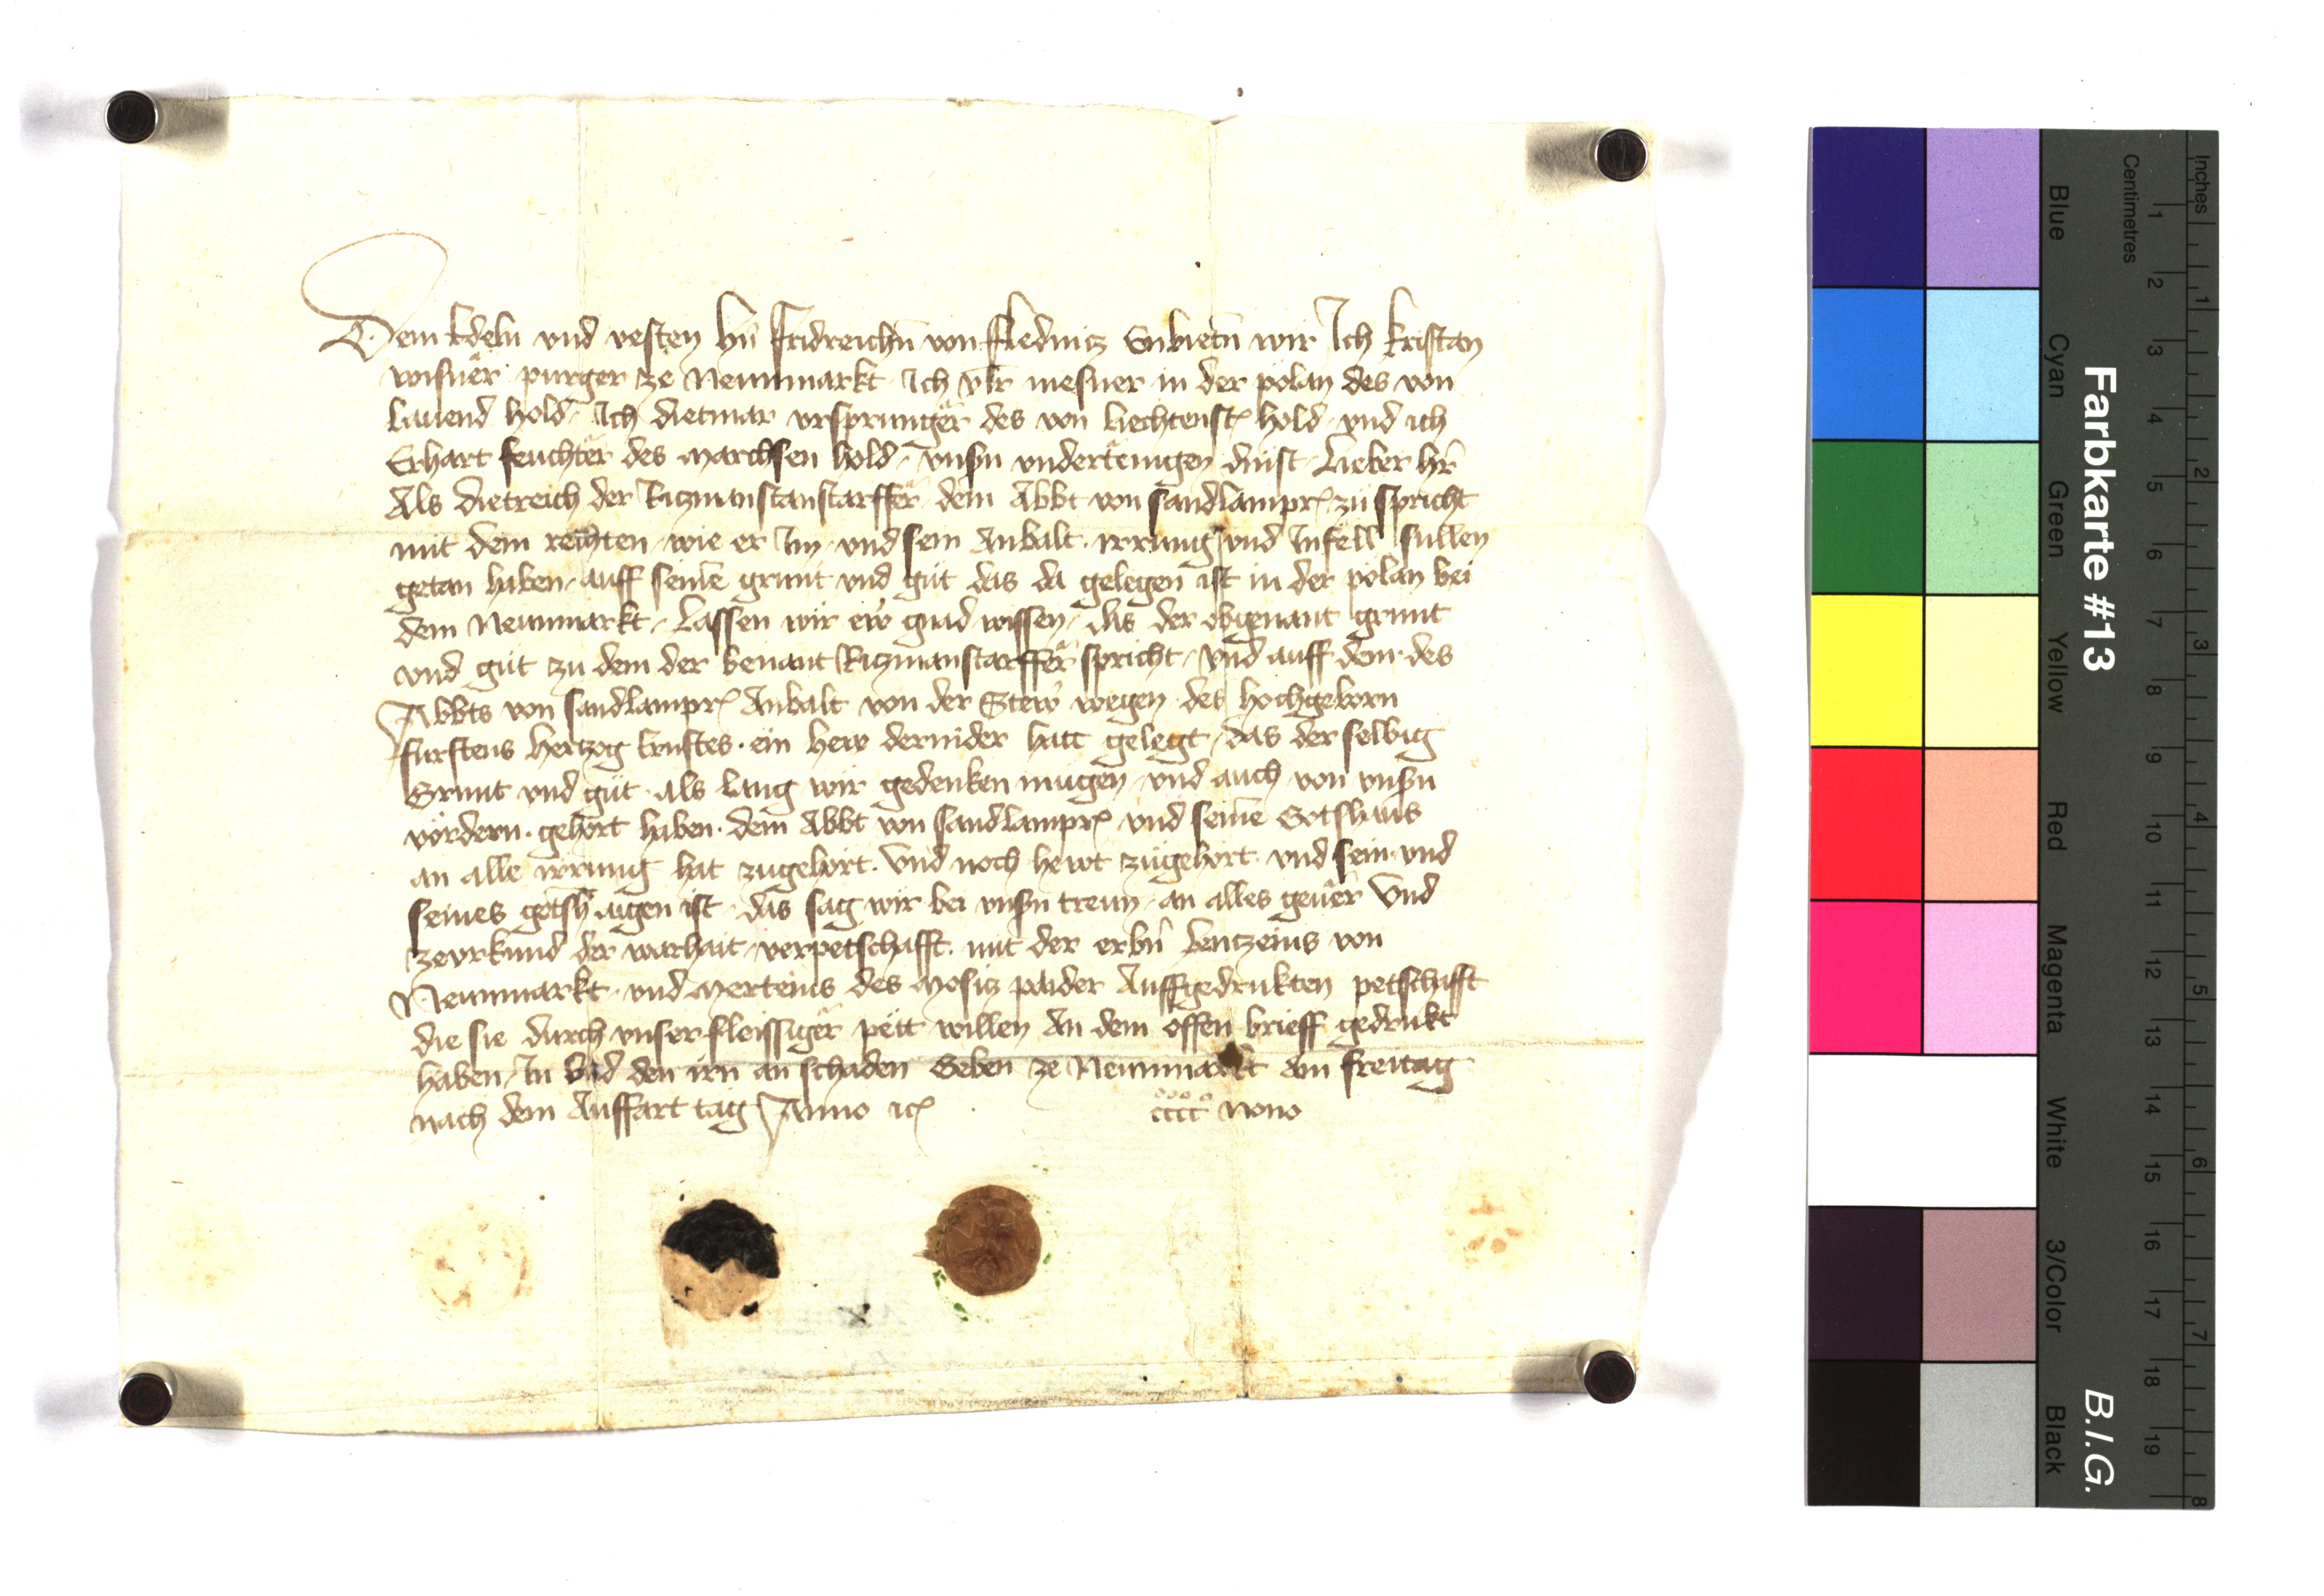 Dem Edeln vnd vesten hn̄ Fridreichn̄ von Flednicz Enbietn̄ wir Ich kristan
wisnër purger ze Neunmarkt Ich vlr̄ mesner in der pölan des von
Lauend hold Ich dietmar vrsprunger des von Liechtenst hold vnd ich
Erhart feuchtër des marchsen hold vnsn̄ vndertënigen dinst Lieber hr̄
Als dietreich der Riczmanstanstarffër dem Abbt von sandlampr zu spricht
mit dem rechten wie er Im vnd sein Anbalt irrung vnd Infëll sullen
getan haben auff seine grunt vnd gut das da gelegen ist in der pölan bei
dem Neunmarkt Lassen wir ew gnad wissen das der obgenant grunt
vnd gut zu dem der benant Riczmanstarffër spricht vnd auff dem des
Abbts von sandlampr Anbalt von der Stew wegen des hochgeborn
fürstens hertzog Ernstes ein hew dernider hatt gelegt das der selbig
Grunt vnd güt als lang wir gedenken mügen vnd auch von vnsn̄
vördern gehört haben dem Abbt von sandlampr vnd seine Gotshaus
an alle irrung hat zugehört Vnd noch hewt zugehört vnd sein vnd
seines gotsh aigen ist das sag wir bei vnsn̄ treun an alles geuer Vnd
ze vrkund der warhait verpetschafft mit der erbn̄ Lentzeins von
Neunmarkt vnd Merteins des Mosicz paider Auffgedrukten petschafft
die sie durch vnser fleissiger pett willen An dem offen brieff gedrukt
haben In vnd den irn an schaden Geben ze Neunmarkt am freitag
nach dem Auffart tag Anno ic cccc nono
Farbkarte #13 B.I.G.
Inches 1 2 3 4 5 6 7 8
Centimetres 1 2 3 4 5 6 7 8 9 10 11 12 13 14 15 16 17 18 19
Blue Cyan Green Yellow Red Magenta White 3/Color Black